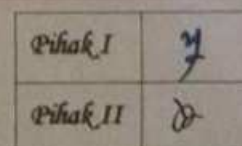 Pihak I
Pihak II